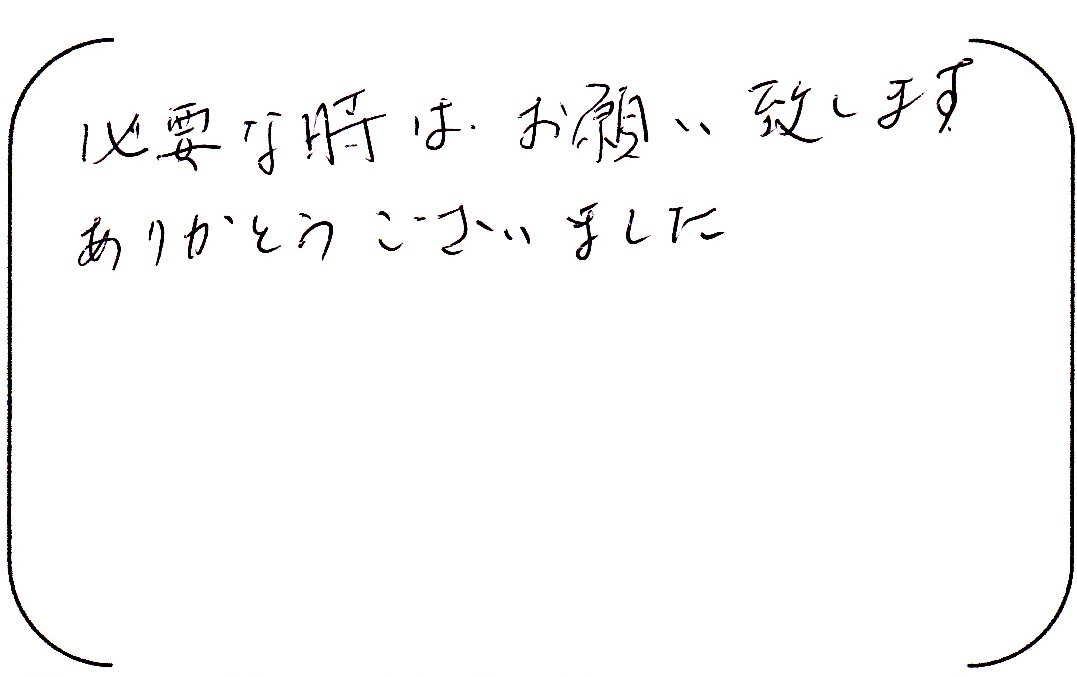 必要な時は お願い致します
ありがとうございました